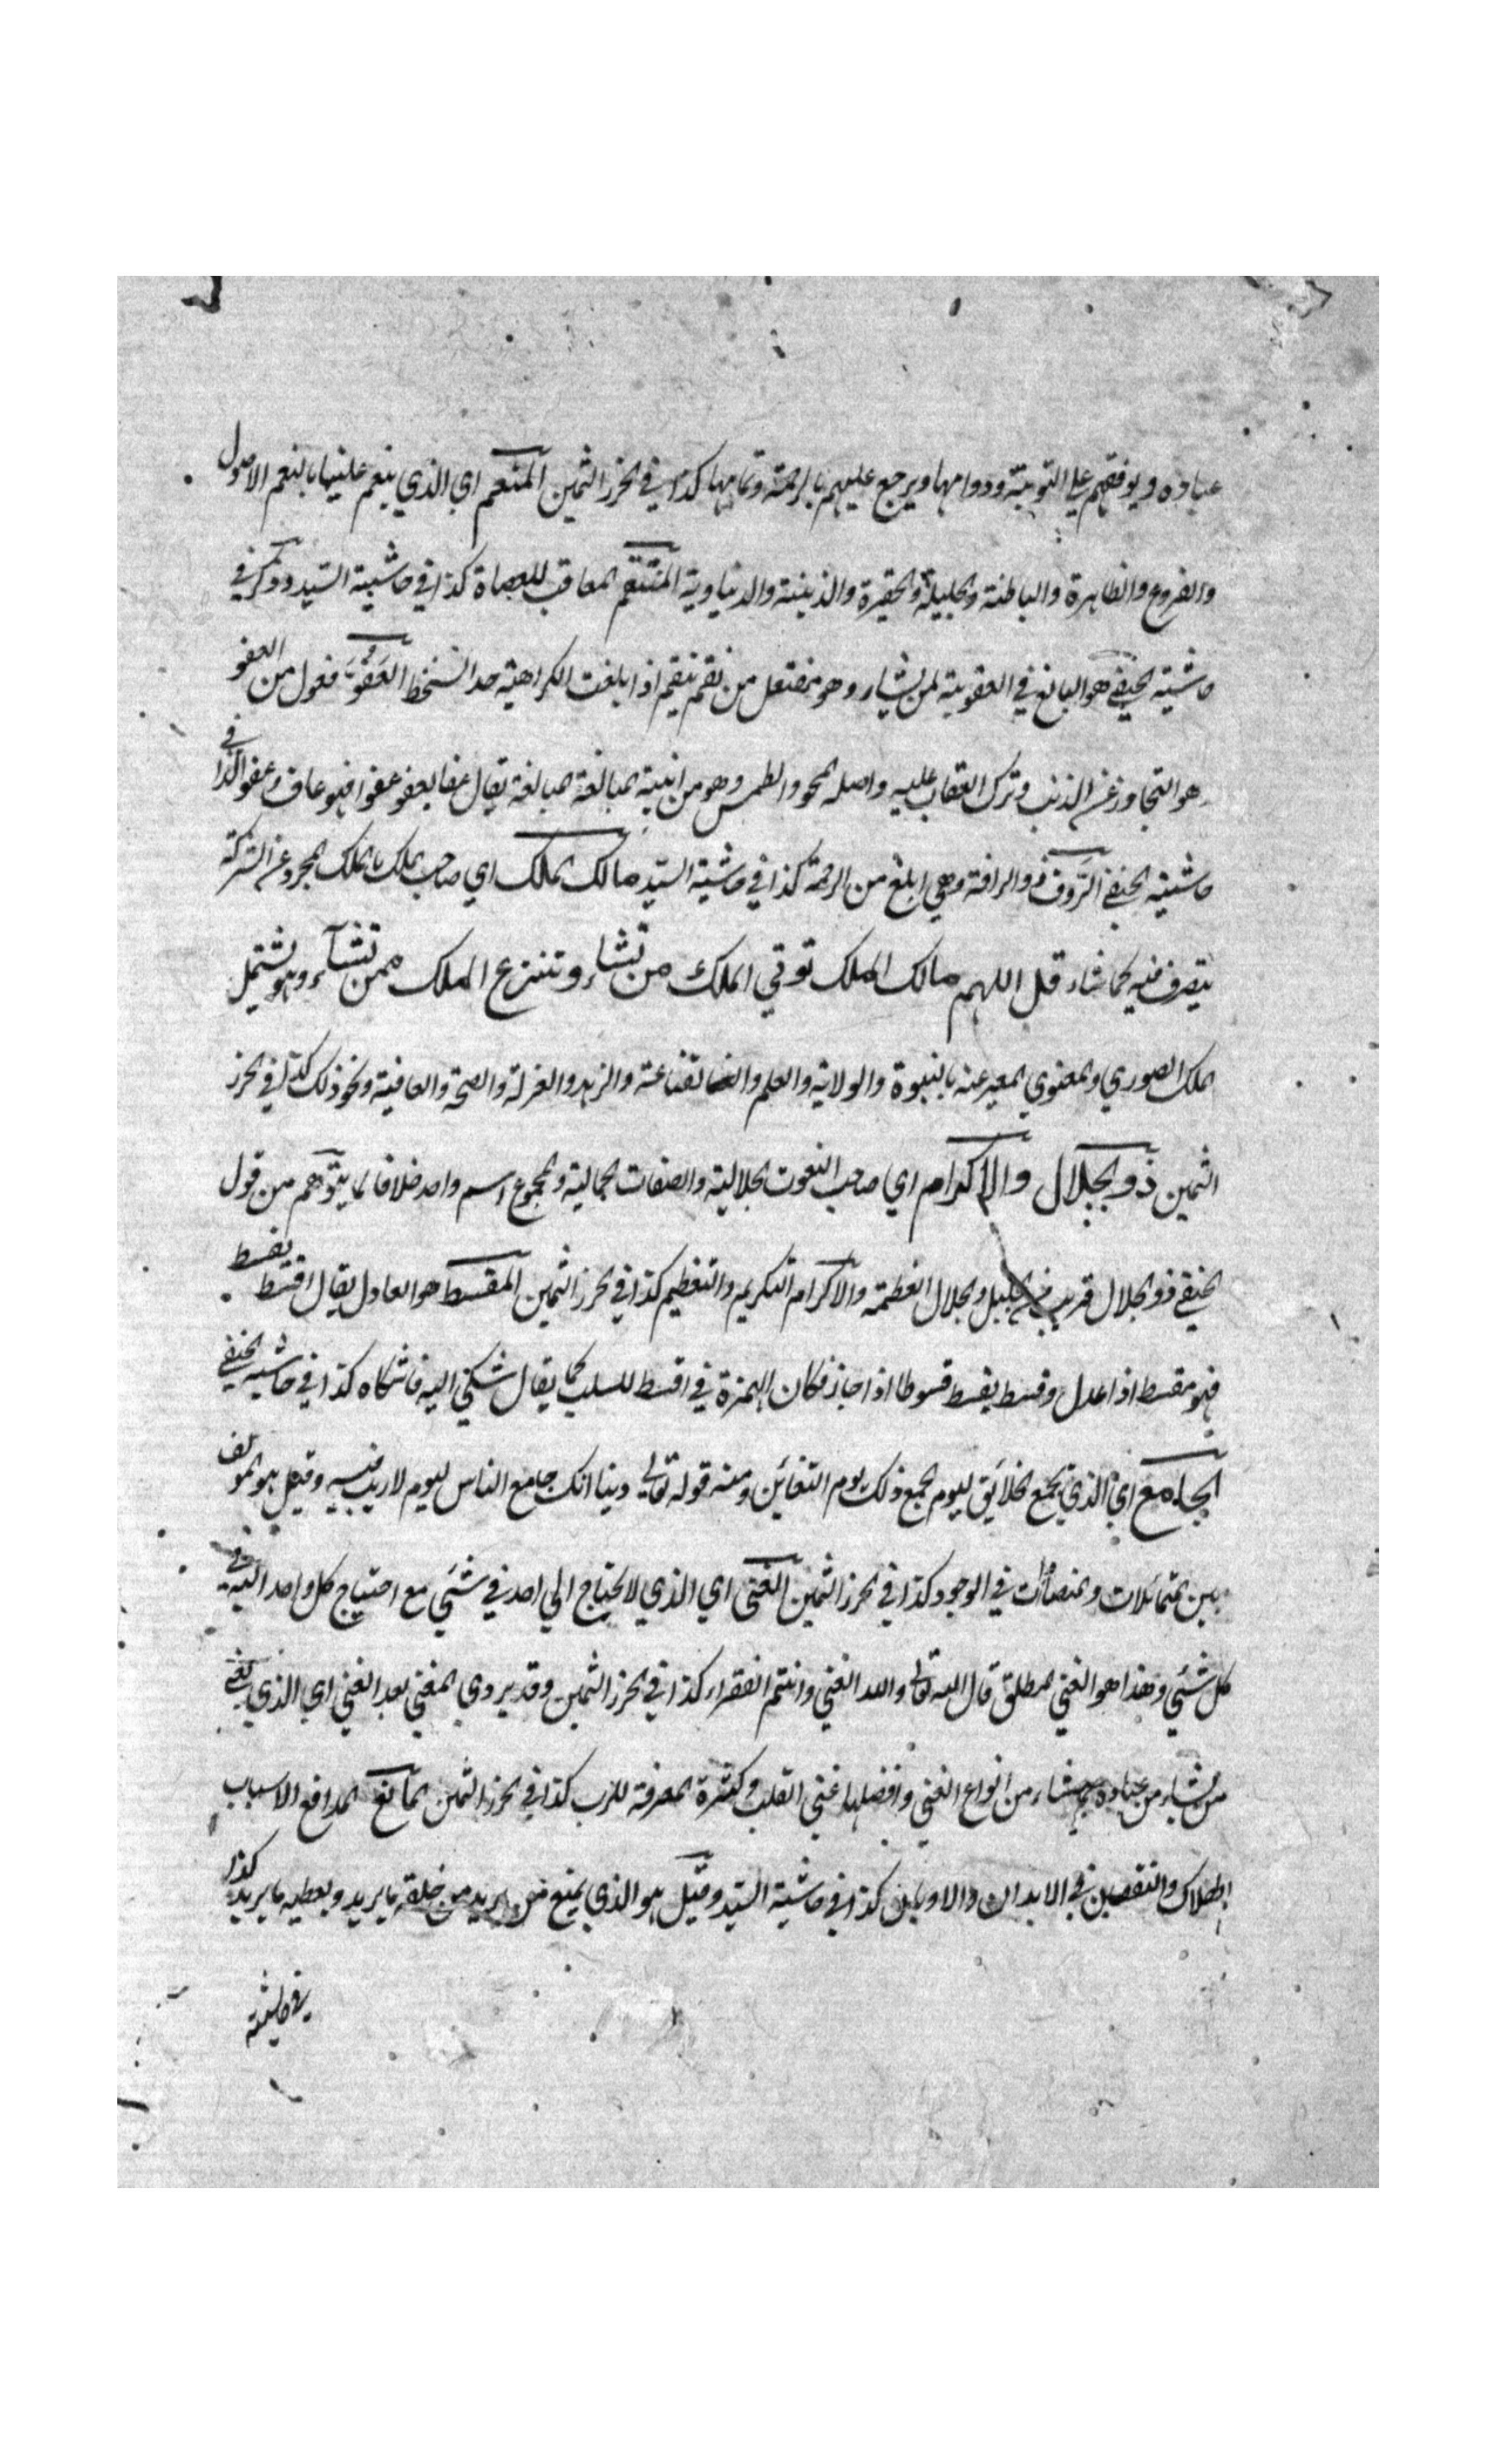 عباده ويوفقهم علي التوبة ودوامها ويرجع عليهم بالرحمة وتمامها كذا في الحرز الثمين المنعم اي الذي ينعم علينا بالنعم الاصول
والفروع والظاهرة والباطنة والجليلة والحقيرة والدينية والدنياوية المنتقم المعاقب للعصاة كذا في حاشية السيد وذكر في
حاشية الحنفي هو البالغ في العقوبة لمن يشاء وهو مفتعل من نقم ينقم اذا بلغت الكراهية حد السخط العَفُوُّ فعول من العفو
هو التجاوز عن الذنب وترك العقاب عليه واصله المحو والطمس وهو من ابنية المبالغة يقال عفا يعفو عفوا فهو عاف وعفو كذا في
حاشية الحنفي الرَّوف ذو الرافة وهي ابلغ من الرحمة كذا في حاشية السيد مالك الملك اي صاحب الملك بالملك المجرد عن الشركة
يتصرف فيه كما شاء قل اللهم مالك الملك توتي الملك من تشاء وتنزع الملك ممن تشآء وهو يشتمل
الملك الصوري والمعنوي المعبر عنه بالنبوة والولاية والعلم والقناعة والزهد والعزلة والصحة والعافية ونحو ذلك كذا في الحرز
الثمين ذو الجلال والاكرام اي صاحب النعوت الجلالية والصفات الجمالية والمجموع اسم واحد خلافا لما يتوهم من قول
الحنفي ذو الجلال قريب من الجليل والجلال العظمة والاكرام التكريم والتعظيم كذا في الحرز الثمين المقسط هو العادل يقال اقسط يقسط
فهو مقسط اذا عدل وقسط يقسط قسوطا اذا جاز فكان الهمزة في اقسط للسلب كما يقال شكي اليه فاشكاه كذا في حاشية الحنفي
الجامع اي الذي يجمع الخلايق ليوم الجمع ذلك يوم التغابن ومنه قوله تعالي ربنا انك جامع الناس ليوم لا ريب فيه وقيل هو المولف
بين المتماثلات والمتضادات في الوجود كذا في الحرز الثمين الغني اي الذي لا يحتاج الي احد في شئي مع احتياج كل واحد اليه في
كل شئي وهذا هو الغني المطلق قال الله تعالي والله الغني وانتم الفقراء كذا في الحرز الثمين وقد يروي المغني بعد الغني اي الذي يغني
من يشاء من عباده بما يشاء من انواع الغني وافضلها غني القلب وكثرة المعرفة للرب كذا في الحرز الثمين المانع المدافع الاسباب
الهلاك والنقصان في الابدان والاديان كذا في حاشية السيد وقيل هو الذي يمنع من يريد من خلقه ما يريد ويعطيه ما يريد كذا
في حاشية